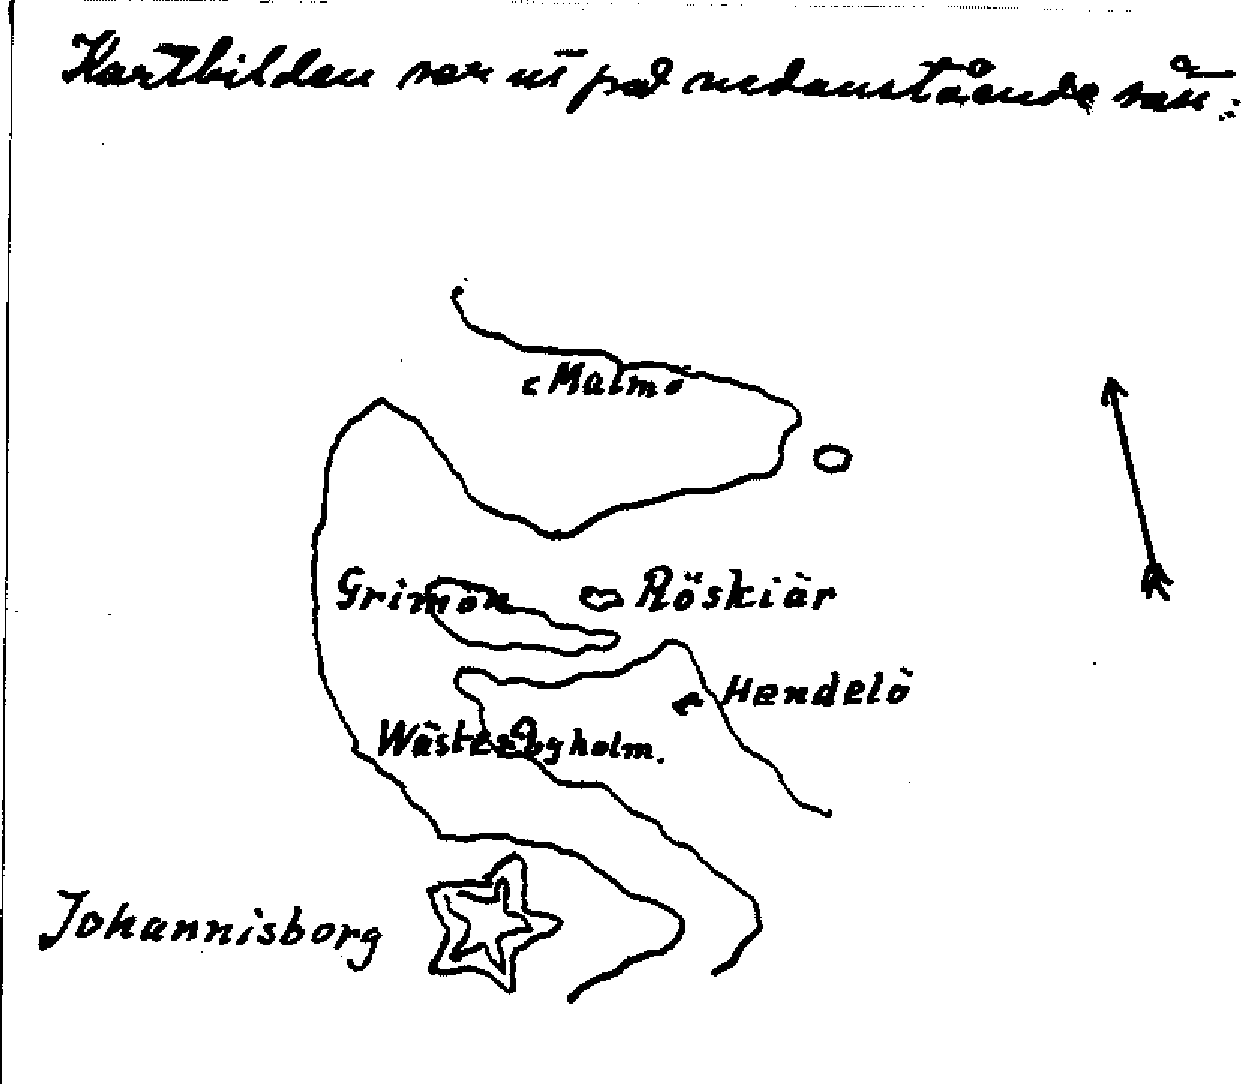 Kartbilden ser ut på nedanstående sätt:
Malmö
Grimön Röskiär
Hendelö
Wästerbyholm.
Johannisborg